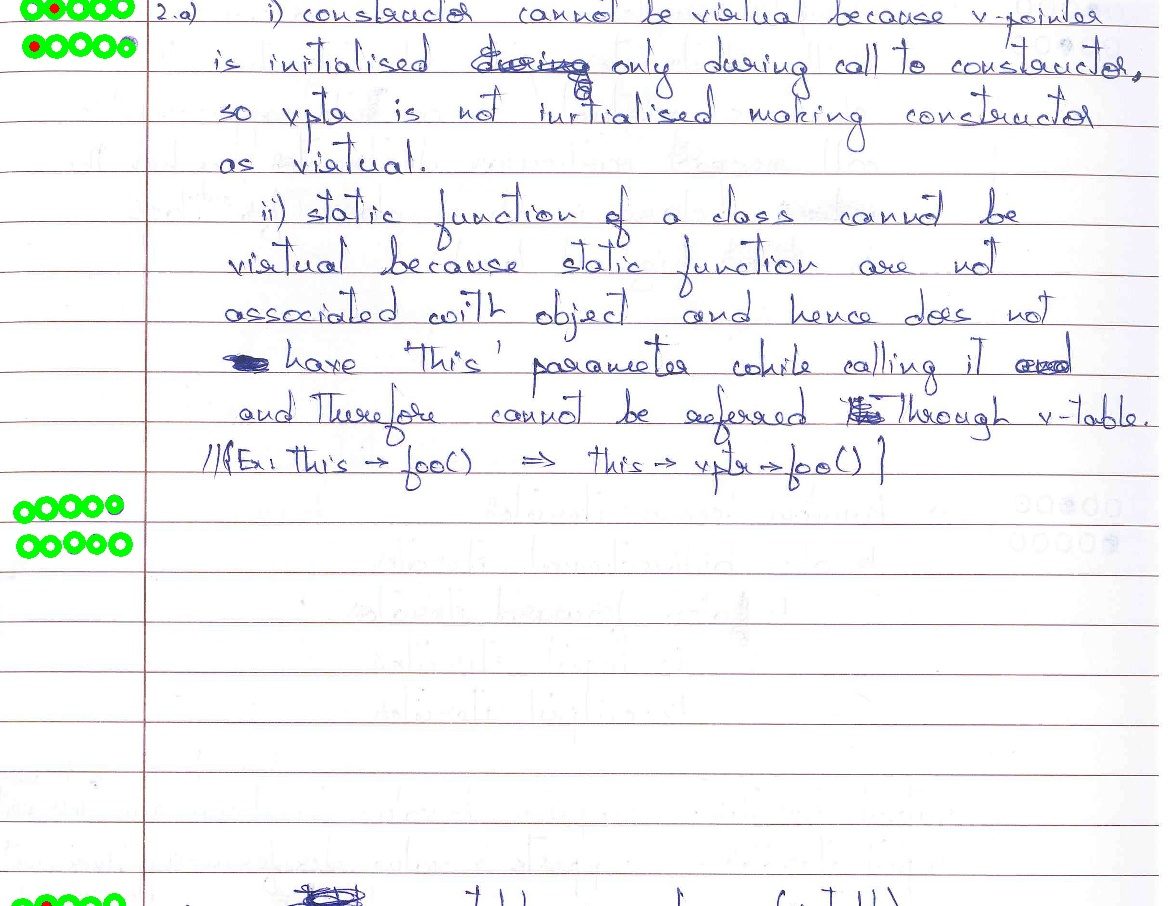 2.a) i) constructor cannot be virtual because v-pointer
is initialised only during call to constructor,
so vptr is not initialised making constructor
as virtual.
ii) static function of a class cannot be
virtual because static function are not
associated with object and hence does not
have 'this' parameter while calling it
and therefore cannot be referred through v-table.
//{Ex: this → foo() ⇒ this → vptr → foo()}